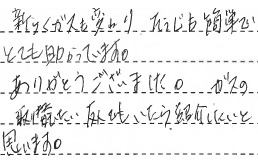 新しくガスも変わり とっても簡単で
とても助かっています。
ありがとうございました。 ガスの
取替したい友人がいたら紹介したいと
思います。